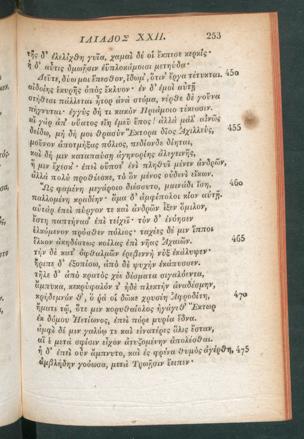 ΙΛΙΑΔΟΣ ΧΧΙΙ. 253
τῆς δ' ἐλελίχθη γυῖα, χαμαὶ δέ οἱ ἔκπεσε κερκίς·
ἡ δ' αὖτις δμωῇσιν ἐϋπλοκάμοισι μετηύδα·
Δεῦτε, δύω μοι ἕπεσθον, ἴδωμ', ὅτιν' ἔργα τέτυκται. 450
αἰδοίης ἑκυρῆς ὀπὸς ἔκλυον· ἐν δ' ἐμοὶ αὐτῇ
στήθεσι πάλλεται ἦτορ ἀνὰ στόμα, νέρθε δὲ γοῦνα
πήγνυται· ἐγγὺς δή τι κακὸν Πριάμοιο τέκεσσιν.
αἲ γὰρ ἀπ' οὔατος εἴη ἐμεῦ ἔπος· ἀλλὰ μάλ' αἰνῶς
δείδω, μὴ δή μοι θρασὺν Ἕκτορα δῖος Ἀχιλλεὺς, 455
μοῦνον ἀποτμήξας πόλιος, πεδίονδε δίηται,
καὶ δή μιν καταπαύσῃ ἀγηνορίης ἀλεγεινῆς,
ἥ μιν ἔχεσκ'· ἐπεὶ οὔποτ' ἐνὶ πληθυῖ μένεν ἀνδρῶν,
ἀλλὰ πολὺ προθέεσκε, τὸ ὃν μένος οὐδενὶ εἴκων.
Ὣς φαμένη μεγάροιο διέσσυτο, μαινάδι ἴση, 460
παλλομένη κραδίην· ἅμα δ' ἀμφίπολοι κίον αὐτῇ.
αὐτὰρ ἐπεὶ πύργον τε καὶ ἀνδρῶν ἷξεν ὅμιλον,
ἔστη παπτήνασ' ἐπὶ τείχεϊ· τὸν δ' ἐνόησεν
ἑλκόμενον πρόσθεν πόλιος· ταχέες δέ μιν ἵπποι
ἕλκον ἀκηδέστως κοίλας ἐπὶ νῆας Ἀχαιῶν. 465
τὴν δὲ κατ' ὀφθαλμῶν ἐρεβεννὴ νὺξ ἐκάλυψεν·
ἤριπε δ' ἐξοπίσω, ἀπὸ δὲ ψυχὴν ἐκάπυσσεν.
τῆλε δ' ἀπὸ κρατὸς χέε δέσματα σιγαλόεντα,
ἄμπυκα, κεκρύφαλόν τ' ἠδὲ πλεκτὴν ἀναδέσμην,
κρήδεμνόν θ', ὅ ῥά οἱ δῶκε χρυσῆ Ἀφροδίτη, 470
ἤματι τῷ, ὅτε μιν κορυθαίολος ἠγάγεθ' Ἕκτωρ
ἐκ δόμου Ἠετίωνος, ἐπεὶ πόρε μυρία ἕδνα.
ἀμφὶ δέ μιν γαλόῳ τε καὶ εἰνατέρες ἅλις ἔσταν,
αἵ ἑ μετὰ σφίσιν εἶχον ἀτυζομένην ἀπολέσθαι.
ἡ δ' ἐπεὶ οὖν ἄμπνυτο, καὶ ἐς φρένα θυμὸς ἀγέρθη, 475
ἀμβλήδην γοόωσα, μετὰ Τρωῇσιν ἔειπεν·